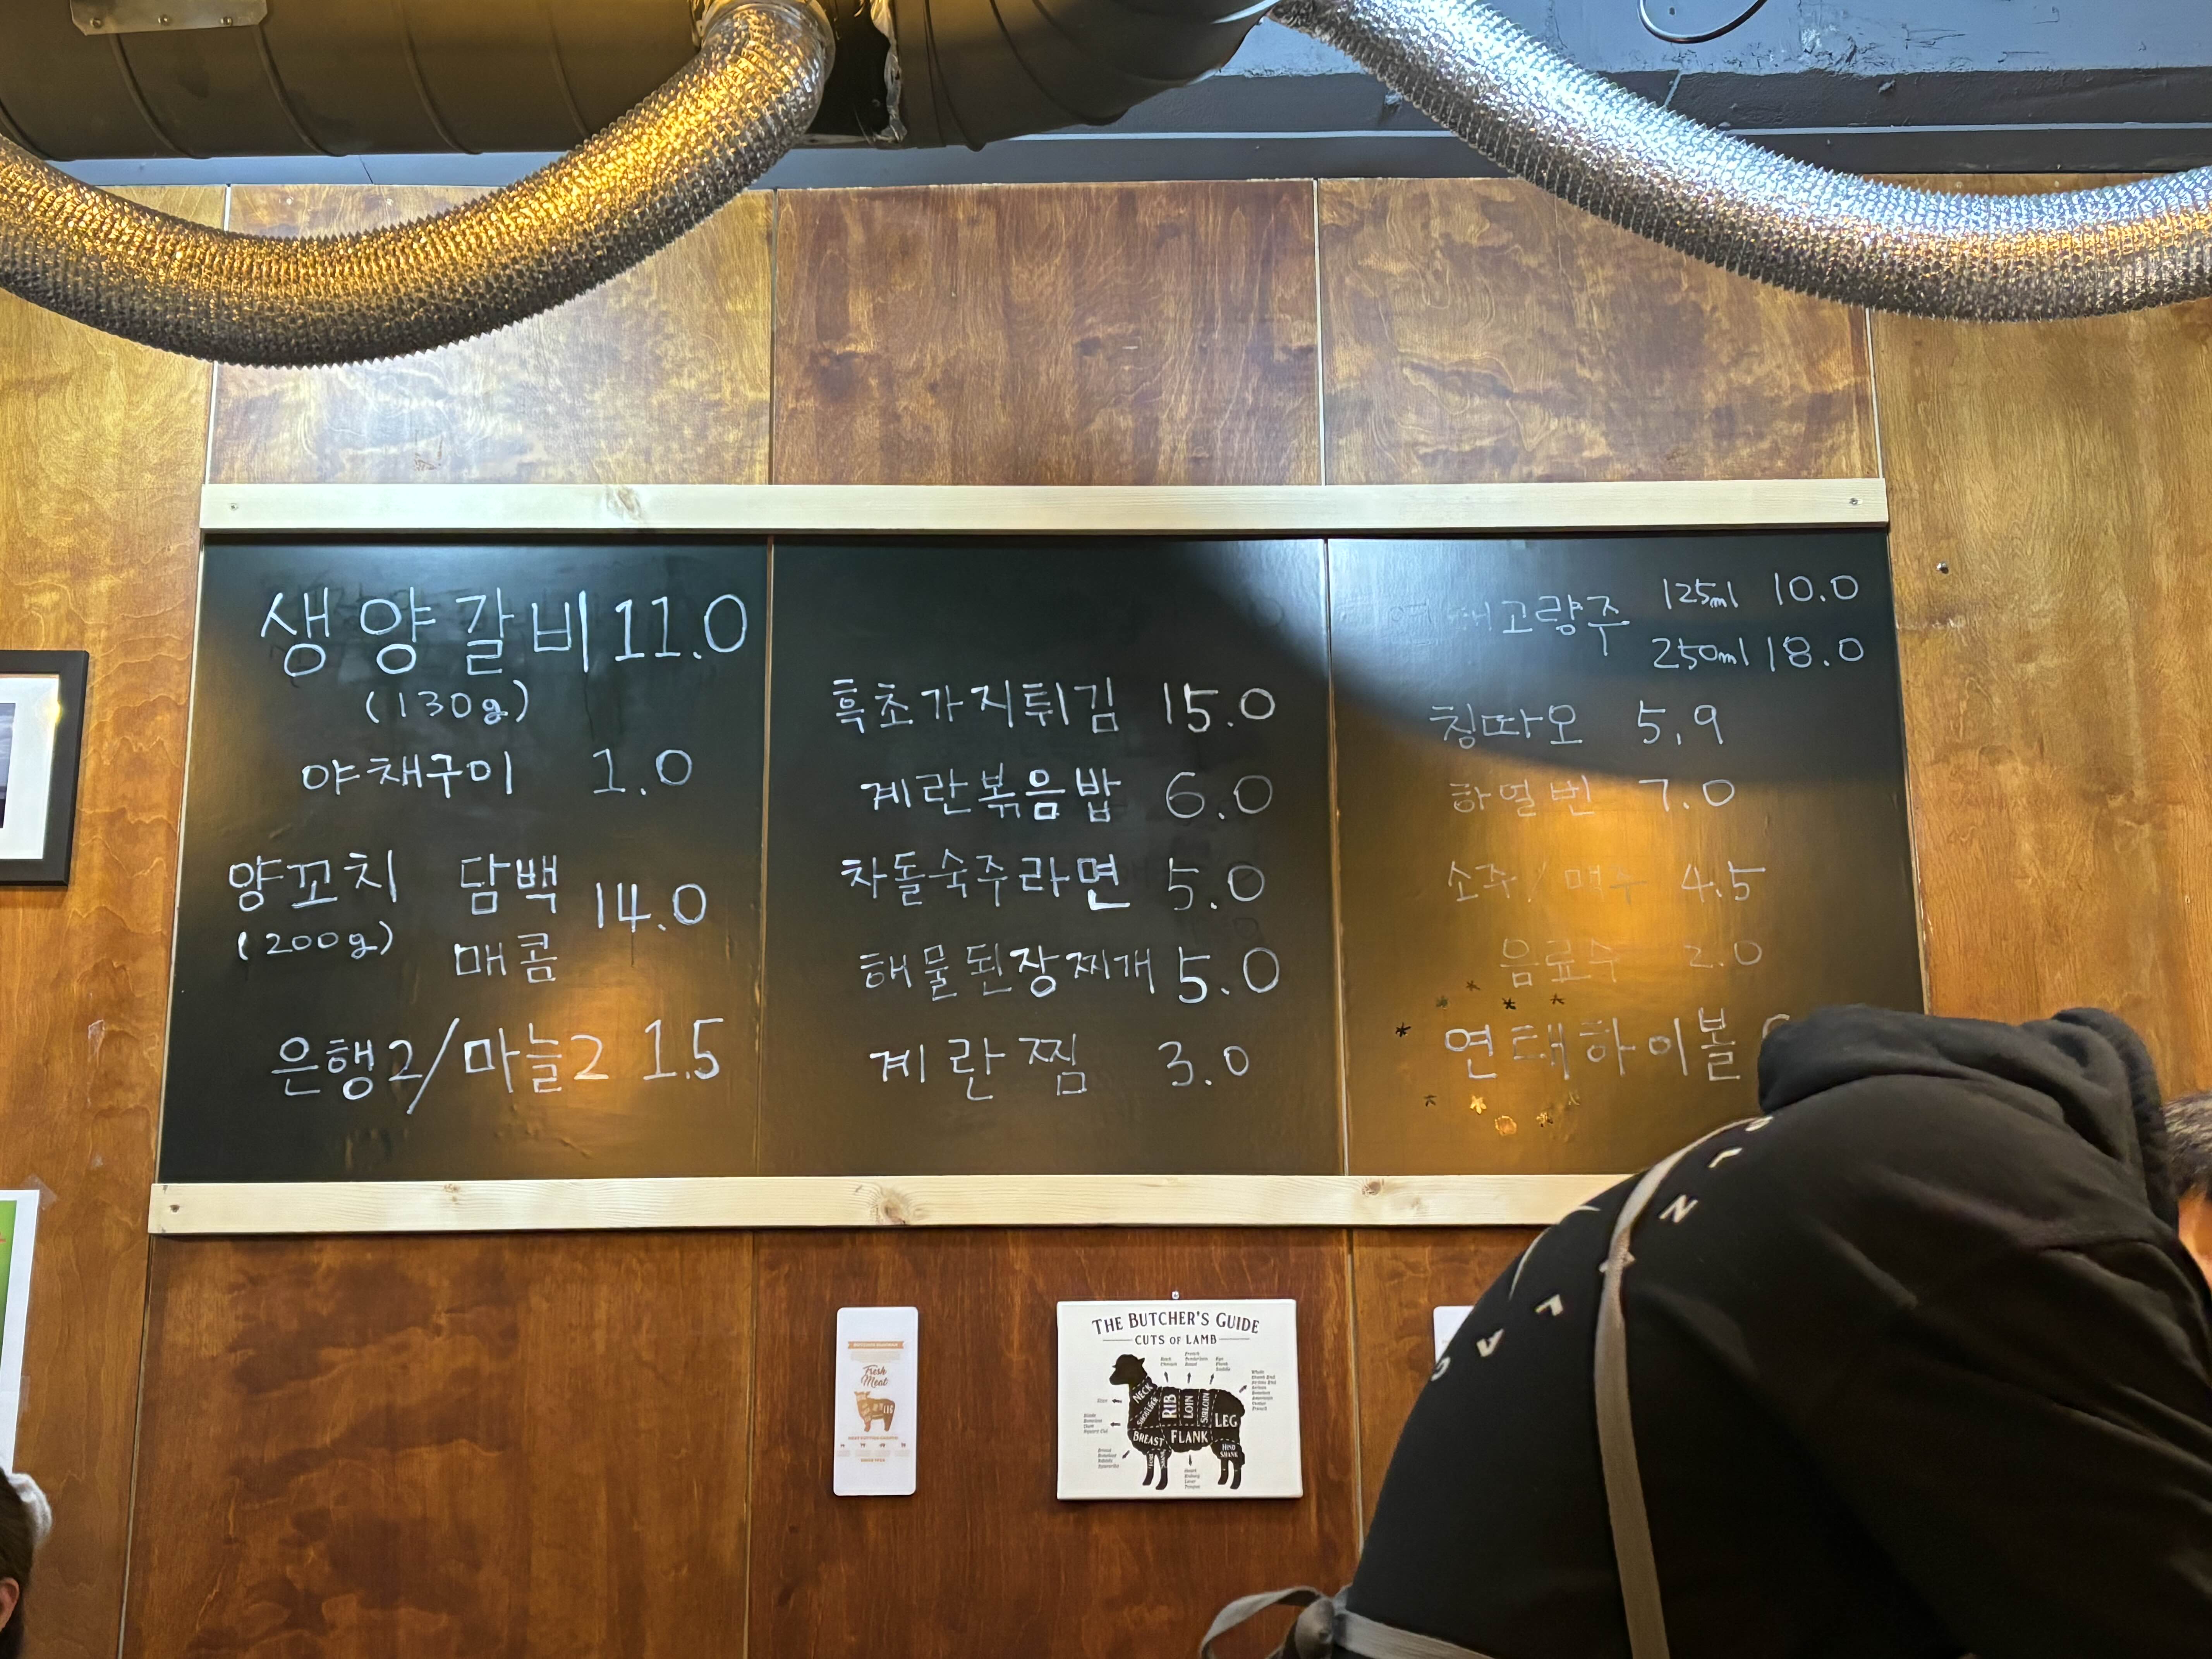 생양갈비 11.0
(130g)
야채구이 1.0
양꼬치 담백 14.0
(200g) 매콤
은행2/마늘2 1.5
흑초가지튀김 15.0
계란볶음밥 6.0
차돌숙주라면 5.0
해물된장찌개 5.0
계란찜 3.0
연태고량주 125ml 10.0
250ml 18.0
칭따오 5,9
하얼빈 7.0
소주/맥주 4.5
음료수 2.0
연태하이볼
Fresh
Meat
THE BUTCHER'S GUIDE
CUTS OF LAMB
NECK
SHOULDER
RIB
LOIN
SIRLOIN
LEG
BREAST
FLANK
HIND
SHANK